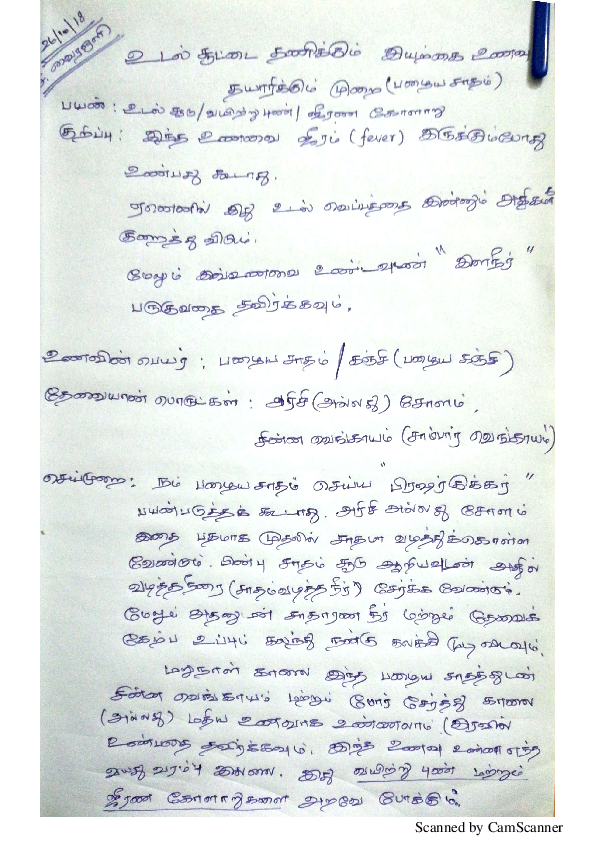 26/10/18
உடல் சூட்டை தணிக்கும் இயற்கை உணவு
தயாரிக்கும் முறை (பழைய சாதம்)
பயன் : உடல் சூடு / வயிற்று புண் / ஜீரண கோளாறு
குறிப்பு : இந்த உணவை ஜீரம் (fever) இருக்கும்போது
உண்பது கூடாது.
ஏனெனில் இது உடல் வெப்பத்தை இன்னும் அதிகம்
குறைத்து விடும்.
மேலும் இவ்உணவை உண்டவுடன் "இளநீர்"
பருகுவதை தவிர்க்கவும்.
உணவின் பெயர் : பழைய சாதம் / கஞ்சி (பழைய கஞ்சி)
தேவையான பொருட்கள் : அரிசி (அல்லது) சோளம்,
சின்ன வெங்காயம் (சாம்பார் வெங்காயம்)
செய்முறை : நம் பழைய சாதம் செய்ய "பிரஷர்குக்கர்"
பயன்படுத்தக் கூடாது. அரிசி அல்லது சோளம்
இதை பதமாக முதலில் சாதமா வடித்துக்கொள்ள
வேண்டும். பின்பு சாதம் சூடு ஆறியவுடன் அதில்
வடித்தநீரை (சாதம்வடித்த நீர்) சேர்க்க வேண்டும்.
மேலும் அதனுடன் சாதாரண நீர் மற்றும் தேவைக்
கேற்ப உப்பும் கலந்து நன்கு கலக்கி மூடி விடவும்.
மறுநாள் காலை இந்த பழைய சாதத்துடன்
சின்ன வெங்காயம் மற்றும் மோர் சேர்த்து காலை
(அல்லது) மதிய உணவாக உண்ணலாம் (இரவில்
உண்பதை தவிர்க்கவும். இந்த உணவு உண்ண எந்த
வயது வரம்பு இல்லை. இது வயிற்று புண் மற்றும்
ஜீரண கோளாறுகளை அறவே போக்கும்.
Scanned by CamScanner